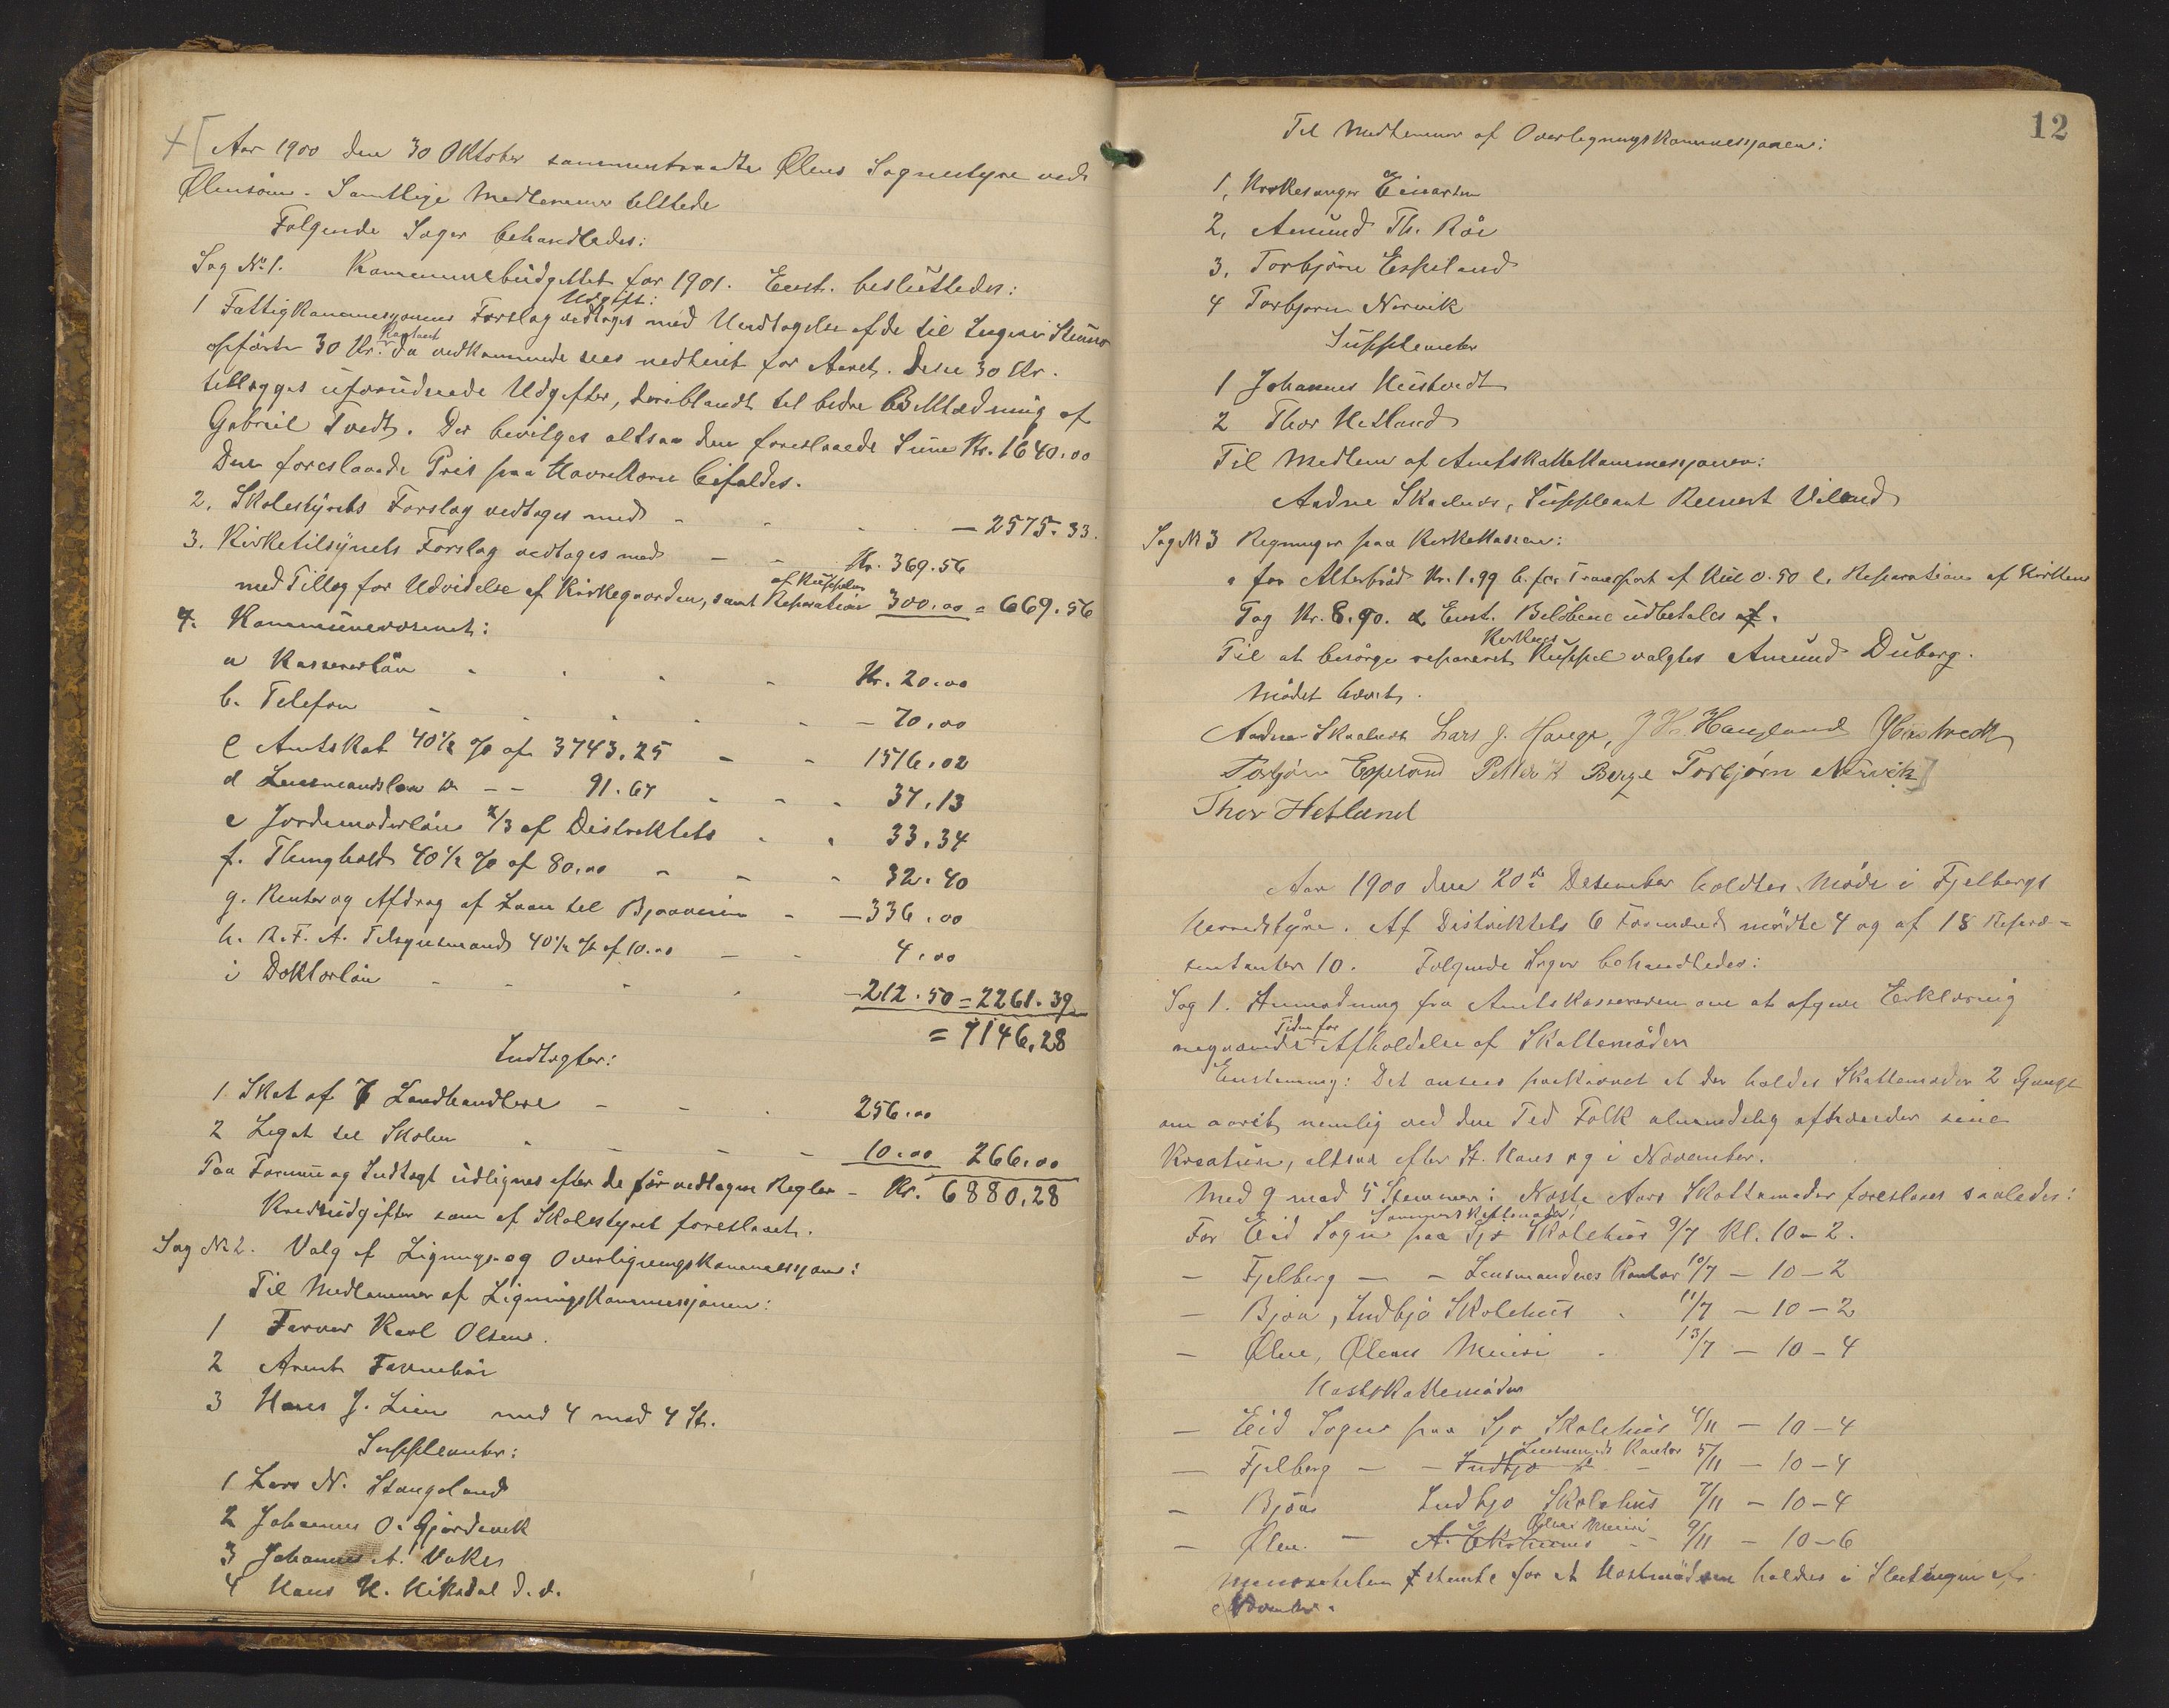 Aar 1900 den 30 Oktober sammentraadte Ølens Sognestyre ved
Ølensøen. Samtlige Medlemmer tilstede
Følgende Sager behandledes:
Sag No 1. Kommunebudgettet for 1901. Enst. besluttedes:
Udgift:
1 Fattigkommessjonens Forslag vedtages med Undtagelse af de til
opførte 30 Kr. da vedkommende sees for Aaret. Disse 30 Kr.
tillægges uforudseede Udgifter, deriblandt til bedre Beklædning af
Gabriel Tvedt. Der bevilges altsaa den foreslaaede Sum Kr. 1640.00
Den foreslaaede Pris paa Havrekorn bifaldes.
2. Skolestyrets Forslag vedtages med - - - 2575.33.
3. Kirketilsynets Forslag vedtages med - - Kr. 369.56
af Kuppelen
med Tillæg for Udvidelse af Kirkegaarden, samt Reparation 300.00 = 669.56
4. Kommunevæsenet:
a Kassererløn - - - - Kr. 20.00
b. Telefon - - - - - 70.00
c Amtskat 40½ % af 3743.25 - - 1516.02
d Lensmandsløn - - 91.67 - - - 37.13
e Jordemoderløn ⅔ af Distriktets - - 33.34
f. Thinghold 40½ % af 80.00 - - - 32.40
g. Renter og Afdrag af Laan til Bjoaveien - - 336.00
h. R.F.A. Tilsynsmand 40½ % af 10.00 - - 4.00
i Doktorløn - - - - - 212.50 = 2261.39
= 7146.28
Indtægter:
1 Skat af 7 Landhandlere - - - 256.00
2 Legat til Skolen - - - - 10.00 266.00
Paa Formue og Indtægt udlignes efter de før vedtagne Regler - Kr. 6880.28
Kredsudgifter som af Skolestyret foreslaaet.
Sag No 2. Valg af Lignings- og Overligningskommessjon:
Til Medlemmer af Ligningskommessjonen:
1 Farver Karl Olsen.
2 Arent
3 Hans J. Lien med 4 mod 4 St.
Suppleanter:
1 Lars N. Stangeland
2 Johannes O. Gjerdevik
3 Johannes A. Vaka
4 Hans H. Kiksdal d.e.
12
Til Medlemmer af Overligningskommessjonen:
1, Kirkesanger Einarsen
2, Amund Th. Røe
3, Torbjørn Eskeland
4 Torbjørn Nervik
Suppleanter
1 Johannes Hustvedt
2 Thor Hetland
Til Medlem af Amtskattekommessjonen:
Aadne Skaaluer, Suppleant Reinert Vileand
Sag No 3 Regninger paa Kirkekassen:
a for Alterbrød Kr. 1.99 b. for Transport af Kul 0.50 c. Reparation af Kirkens
Tag Kr. 8.90. Enst. Beløbene udbetales.
Kirkens
Til at besørge repareret Kuppel valgtes Amund Duberg.
Mødet hævet.
Aadne Skaaluer Lars J. Hauge, J H. Haugland J Hustvedt
Torbjørn Espeland Petter K Berge Torbjørn Nervik
Thor Hetland
Aar 1900 den 20de Desember holdtes Møde i Fjelbergs
Herredstyre. Af Distriktets 6 Formænd mødte 4 og af 18 Repræ-
sentanter 10. Følgende Sager behandledes:
Sag 1. Anmodning fra Amtskassereren om at afgive Erklæring
Tiden for
angaaende Afholdelse af Skattemøder
Enstemmig: Det ansees paakrævet at der holdes Skattemøder 2 Gange
om aaret, nemlig ved den Tid Folk almindelig afhænder sine
Kreature, altsaa efter St. Hans og i November.
Med 9 mod 5 Stemmer: Næste Aars Skattemøder foreslaaes saaledes:
Sommerskattemøder:
For Eid Sogn paa Sjo Skolehus 9/7 Kl. 10 - 2.
- Fjelberg - - Lensmandens Kontor 10/7 - 10 - 2
- Bjoa, Indbjo Skolehus - 11/7 - 10 - 2
- Ølen, Ølens Meieri - 13/7 - 10 - 4
Høstskattemøder
- Eid Sogn paa Sjo Skolehus 4/11 - 10 - 4
Lensmands Kontor
- Fjelberg - - Indbjo - 5/11 - 10 - 4
- Bjoa Indbjo Skolehus 7/11 - 10 - 4
Ølens Meieri
- Ølen - A. - 9/11 - 10 - 6
stemte for at Høstmøderne holdes i Slutningen af
November.